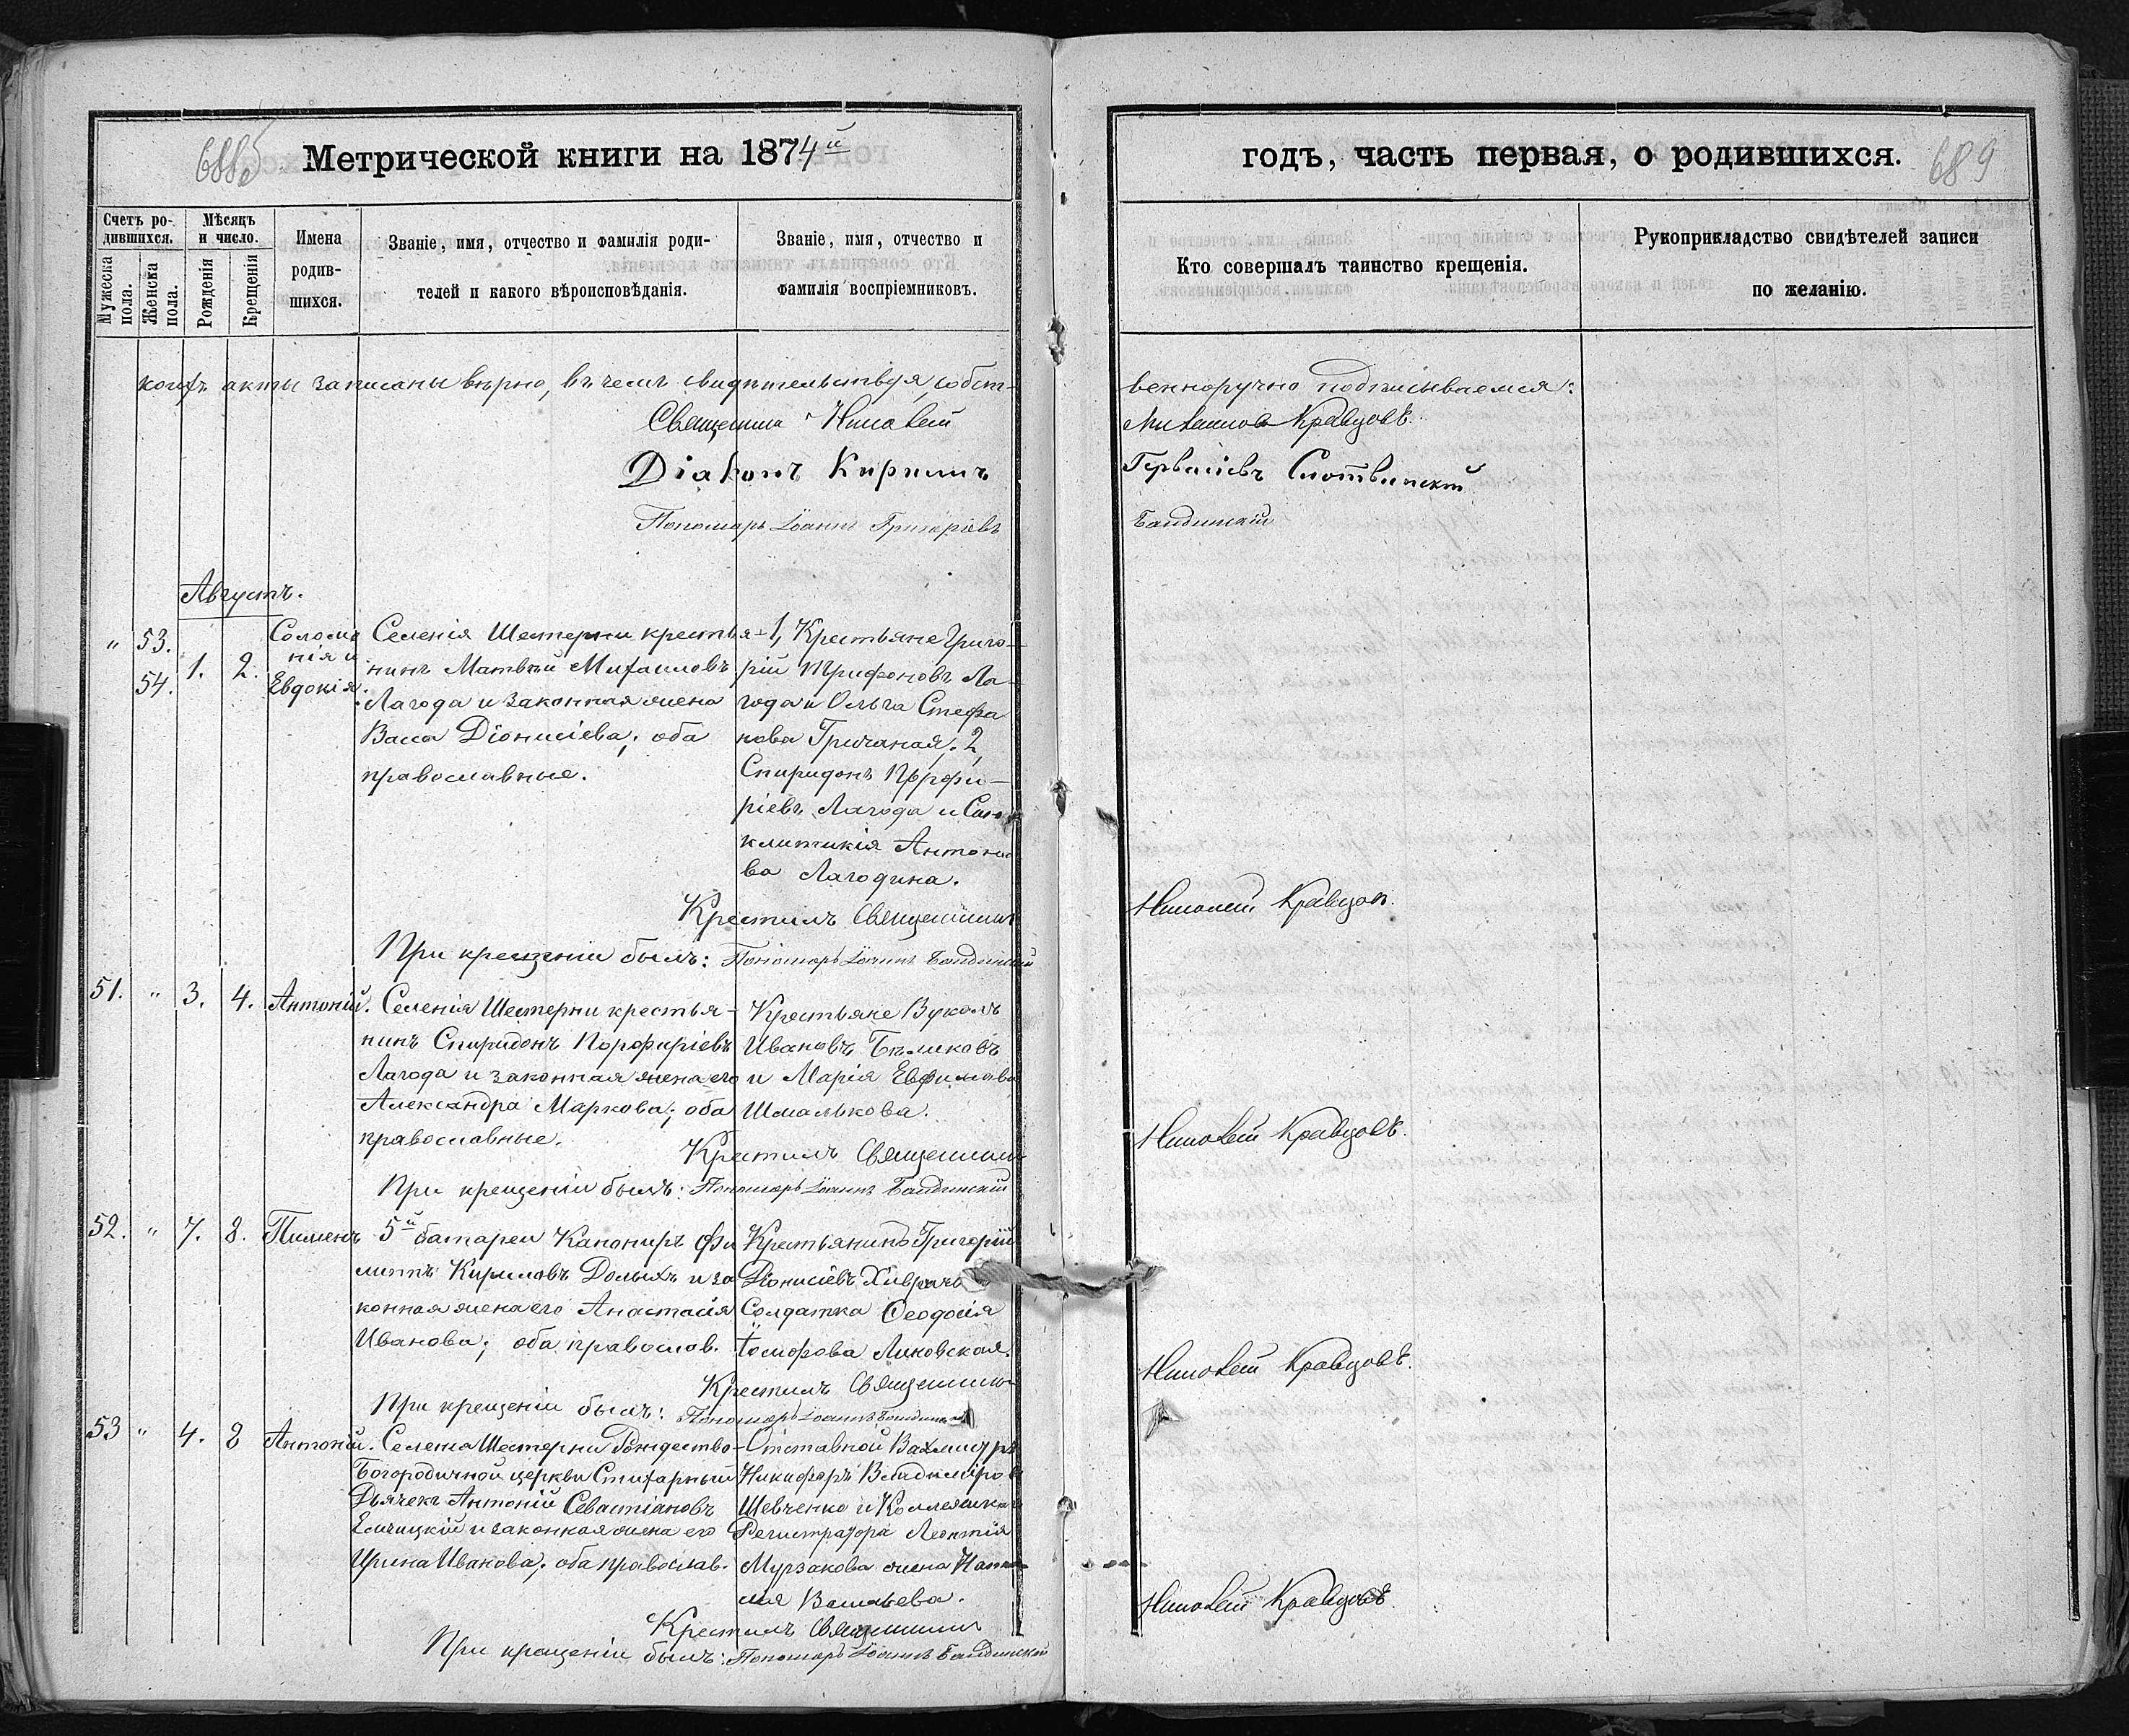 688б
Метрической книги на 1874й
годъ, часть первая, о родившихся.
689
Счетъ родившихся.
Мѣсяцъ и число.
Имена родившихся.
Званіе, имя, отчество и фамилія родителей и какого вѣроисповѣданія.
Званіе, имя, отчество и фамилія воспріемниковъ.
Кто совершалъ таинство крещенія.
Рукоприкладство свидѣтелей записи по желанію.
Мужеска пола.
Женска пола.
Рожденія
Крещенія
акты записаны вѣрно, въ чемъ свидѣтельствуя, собст-
венноручно подписываемся:
Священникъ
Михаиловъ Кравцовъ.
Діаконъ Кирилъ
Гервасіевъ
Пономарь Іоаннъ Григоріевъ
Баидинскій
Августъ.
" 53. 54. 1. 2.
Соломо
нія и
Евдокія.
Селенія Шестерни крестья-
нинъ Матвѣй Михаиловъ
Лагода и законная жена
Васса Діонисіева; оба
православные.
1, Крестьяне Григо-
рій Трифоновъ Ла-
года и Ольга Стефа
нова Гричаная; 2,
Спиридонъ Порфи-
ріевъ Лагода и Син
клитикія Антоно
ва Лагодина.
Крестилъ Священникъ
Кравцовъ.
При крещеніи былъ: Пономарь Іоаннъ Баидинскій
51. " 3. 4. Антоній.
Селенія Шестерни крестья-
нинъ Спиридонъ Порфиріевъ
Лагода и законная жена его
Александра Маркова; оба
православные.
Крестьяне Вуколъ
Ивановъ Бѣликовъ
и Марія Евфимова
Шмалькова.
Крестилъ Священникъ
Кравцовъ.
При крещеніи былъ: Пономарь Іоаннъ Баидинскій
52. " 7. 8. Пименъ
5й батареи Канониръ Фи
липпъ Кириловъ Долыхъ и за
конная жена его Анастасія
Иванова; оба православ.
Крестьянинъ Григорій
Діонисіевъ
Солдатка Ѳеодосія
Ликовская.
Крестилъ Священникъ
Кравцовъ.
При крещеніи былъ: Пономарь Іоаннъ
53 " 4. 8 Антоній.
Селенія Шестерни Рождество-
Богородичной церкви Стихарный
Дьячекъ Антоній Севастіановъ
и законная жена его
Ирина Иванова; оба православ.
Отставной Вахмистръ
Никифоръ Владиміровъ
Шевченко и Коллежска
Регистратора Леонтія
Мурзакова жена Ната-
лія Васильева.
Крестилъ Священникъ
Кравцовъ.
При крещеніи былъ: Пономарь Іоаннъ Баидинскій